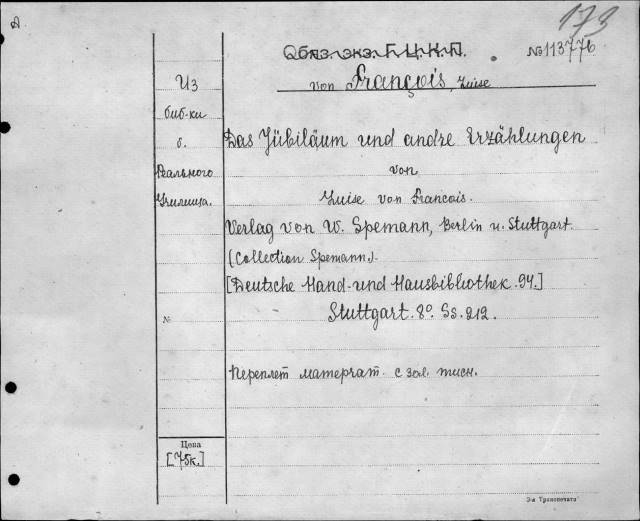 A
173
Обяз. экз. Г.Ц.К.П.
№113776
von François, Luise
Из
биб-ки
б.
Реального
Училища.
Das Jübiläum und andre Erzählungen
von
Luise von Francois.
Verlag von W. Spemann, Berlin u. Stuttgart.
(Collection Spemann.)
[Deutsche Hand- und Hausbibliothek. 94.]
№
Stuttgart. 8°. Ss. 212.
Переплет матерчат. с зол. тисн.
Цена
[75к.]
3-я Транспечать